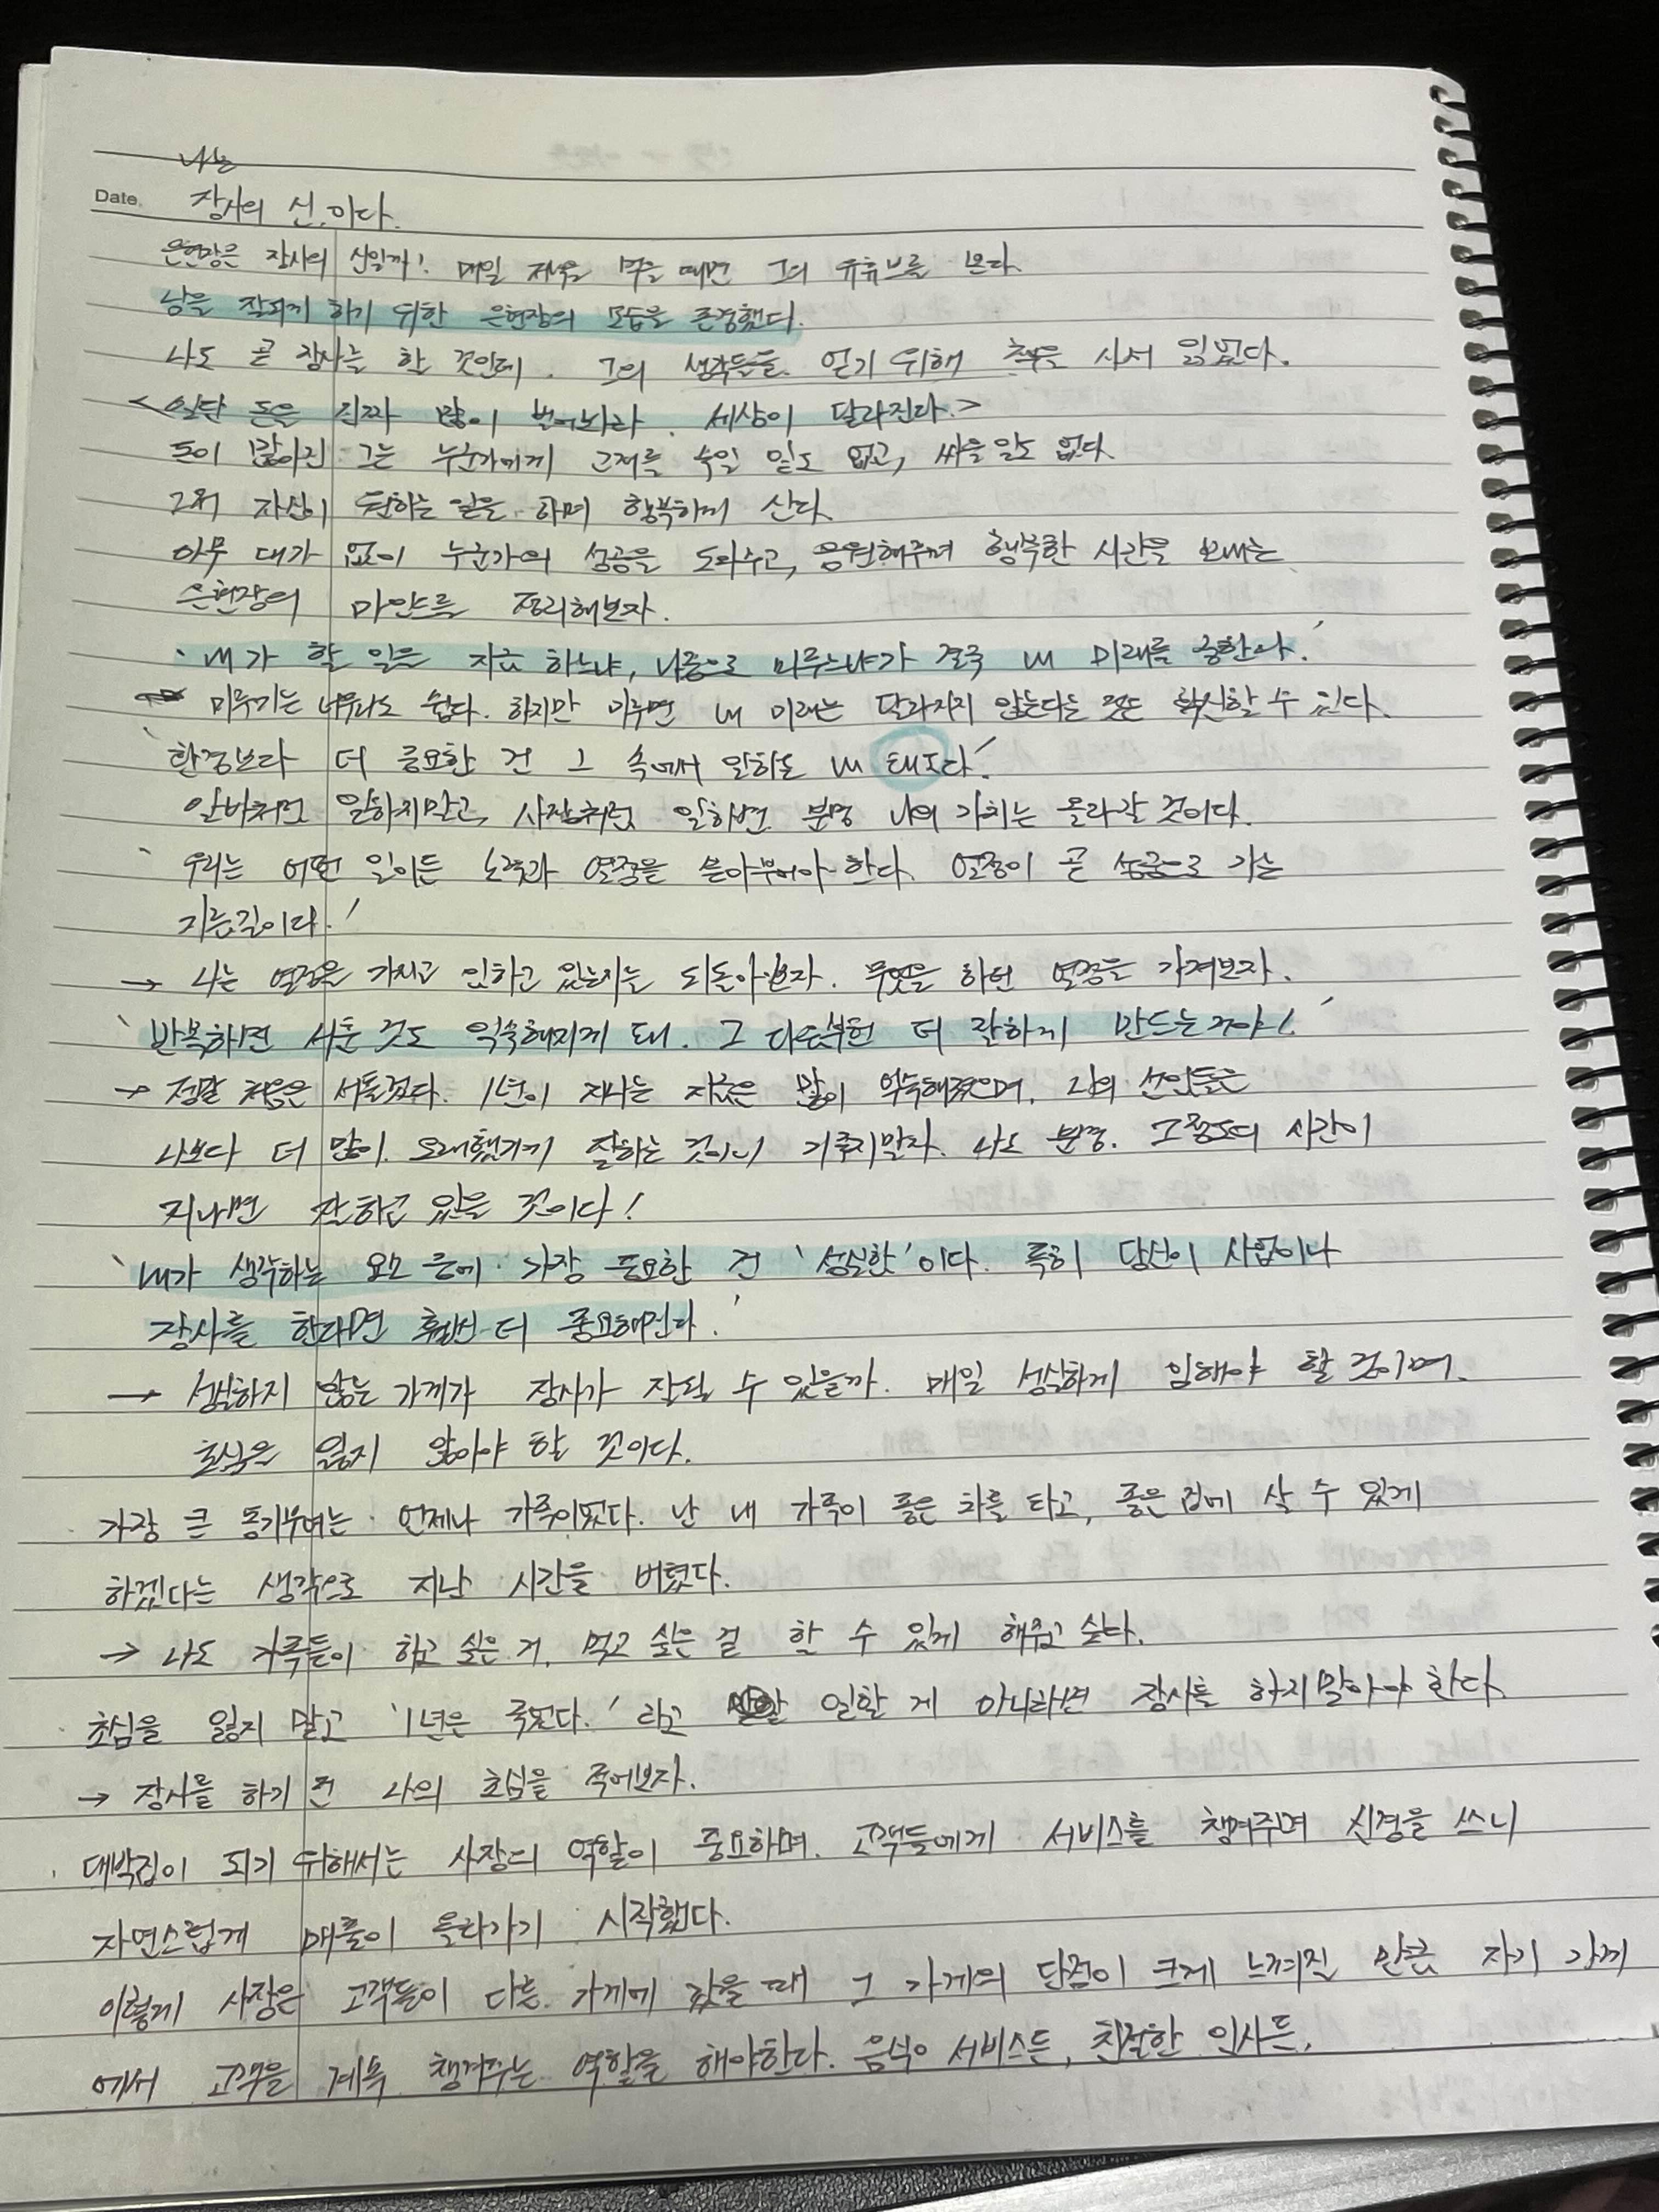 나는
Date. 장사의 신.이다.
은현장은 장사의 신일까! 매일 저녁을 먹을 때면 그의 유튜브를 본다.
남을 잘되게 하기 위한 은현장의 모습을 존경했다.
나도 곧 장사를 할 것인데. 그의 생각들을 얻기 위해 책을 사서 읽었다.
<일단 돈을 진짜 많이 벌어놔라. 세상이 달라진다.>
돈이 많아진 그는 누군가에게 고개를 숙일 일도 없고, 싸울일도 없다.
그저 자신이 원하는 일을 하며 행복하게 산다.
아무 대가 없이 누군가의 성공을 도와주고, 응원해주며 행복한 시간을 보내는
은현장의 마인드를 정리해보자.
'내가 할 일을 지금 하느냐, 나중으로 미루느냐가 결국 내 미래를 정한다.'
미루기는 너무나도 쉽다. 하지만 미루면 내 미래는 달라지지 않는다는 것은 확신할 수 있다.
'환경보다 더 중요한 건 그 속에서 일하는 내 태도다.'
알바처럼 일하지말고, 사장처럼 일하면 분명 나의 가치는 올라갈 것이다.
'우리는 어떤 일이든 노력과 열정을 쏟아부어야 한다. 열정이 곧 성공으로 가는
지름길이다.'
→ 나는 열정을 가지고 임하고 있는지는 되돌아보자. 무엇을 하던 열정을 가져보자.
'반복하면 서툰 것도 익숙해지게 돼. 그 다음부턴 더 잘하게 만드는거야!'
→ 정말 처음은 서툴렀다. 1년이 지나는 지금은 많이 익숙해졌으며, 나의 선임들은
나보다 더 많이 오래했기에 잘하는 것이니 기죽지말자. 나도 분명. 그정도의 시간이
지나면 잘하고 있을 것이다!
'내가 생각하는 요소 중에 가장 중요한 건 '성실함'이다. 특히 당신이 사업이나
장사를 한다면 훨씬 더 중요해진다.'
→ 성실하지 않는 가게가 장사가 잘될 수 있을까. 매일 성실하게 임해야 할 것이며.
초심을 잃지 않아야 할 것이다.
· 가장 큰 동기부여는 언제나 가족이었다. 난 내 가족이 좋은 차를 타고, 좋은 집에 살 수 있게
하겠다는 생각으로 지난 시간을 버텼다.
→ 나도 가족들이 하고 싶은 거, 먹고 싶은 걸 할 수 있게 해주고 싶다.
· 초심을 잃지 말고 '1년은 죽었다.'라고 일할 게 아니라면 장사를 하지말아야 한다.
→ 장사를 하기 전 나의 초심을 적어보자.
· 대박집이 되기 위해서는 사장의 역할이 중요하며. 고객들에게 서비스를 챙겨주며 신경을 쓰니
자연스럽게 매출이 올라가기 시작했다.
이렇게 사장은 고객들이 다른 가게에 갔을 때 그 가게의 단점이 크게 느껴질 만큼 자기 가게
에서 고객을 계속 챙겨주는 역할을 해야한다. 음식이 서비스든, 친절한 인사든,